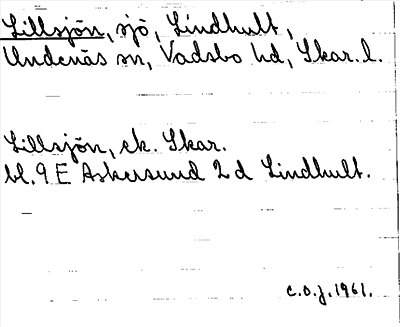 Lillsjön, sjö, Lindhult,
Undenäs sn, Vadsbo hd, Skar. l.
Lillsjön, ek. Skar.
bl. 9 E Askersund 2 d Lindhult.
c.o.j. 1961.